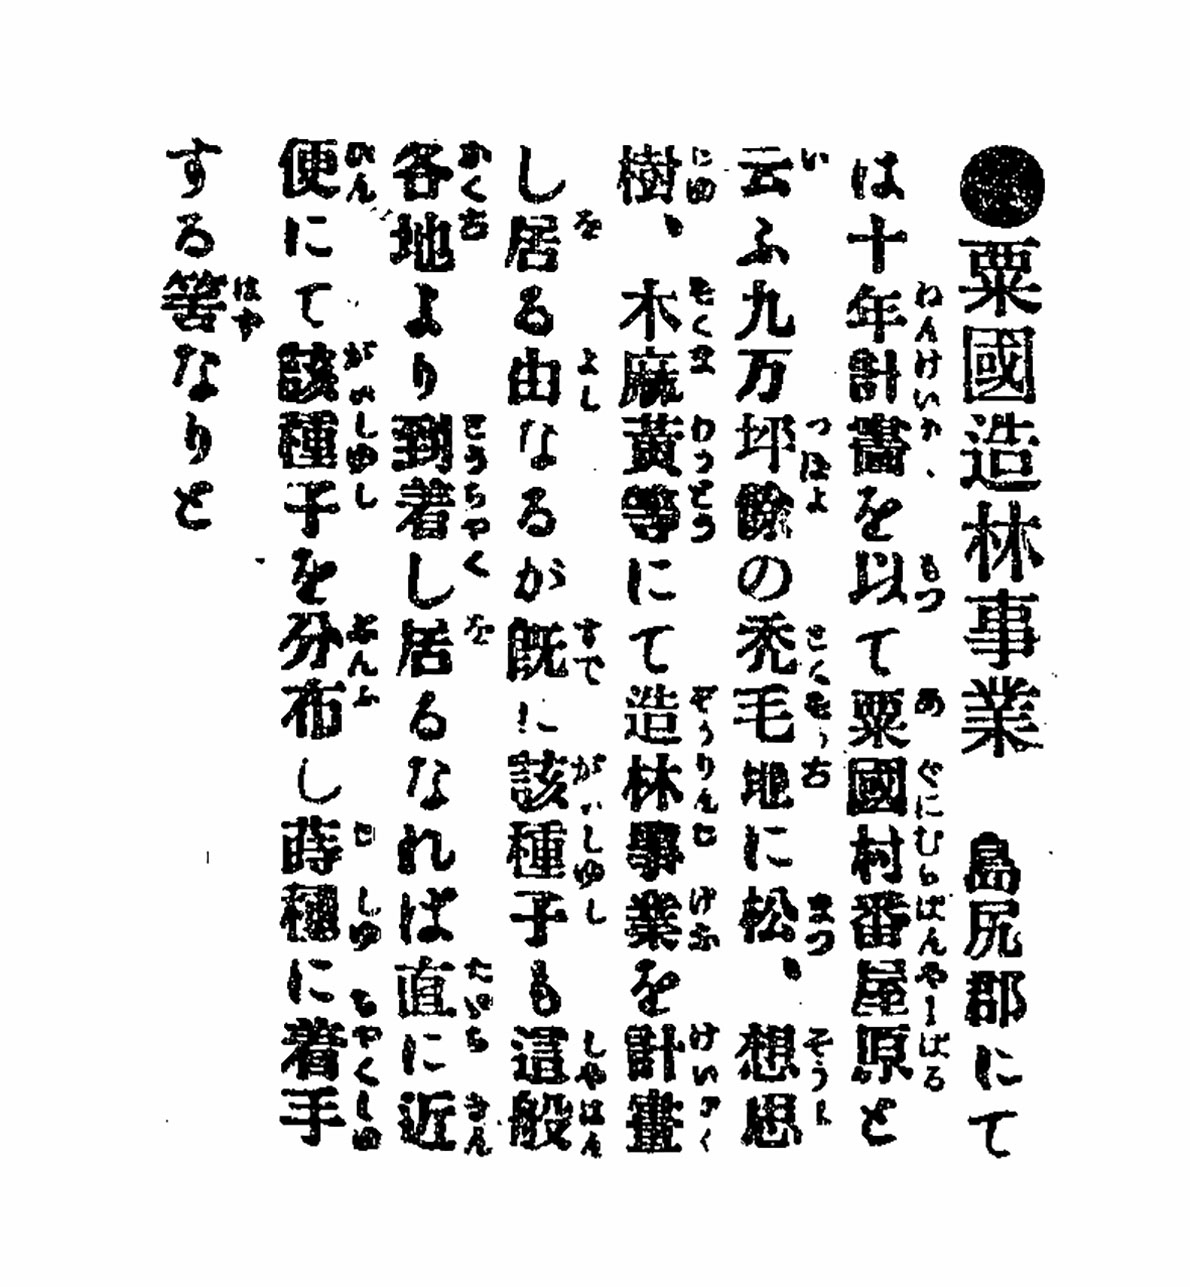 ●粟國造林事業　島尻郡にて
は十年計畵を以て粟國村番屋原と
云ふ九万坪餘の禿毛地に松、想思
樹、木麻黄等にて造林事業を計畫
し居る由なるが既に該種子も這般
各地より到着し居るなれば直に近
便にて該種子を分布し蒔種に着手
する筈なりと